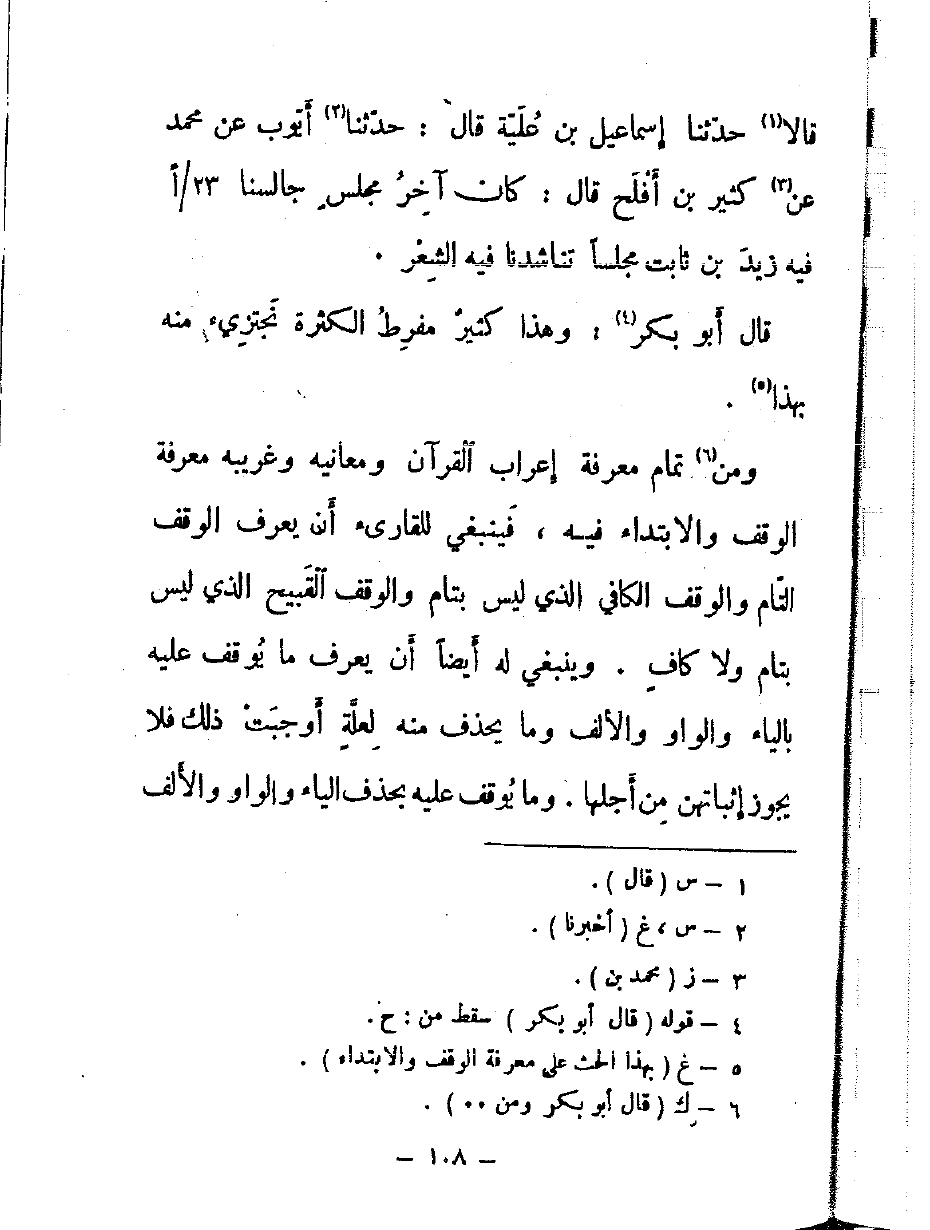 قالا(١) حدّثنا إسماعيل بن عُلَيّة قال : حدّثنا(٢) أيّوب عن محمد
عن(٣) كثير بن أَفْلَح قال : كان آخِرُ مجلسٍ جالسنا ٢٣/أ
فيه زيدَ بن ثابت مجلساً تناشدنا فيه الشِعْر .
قال أَبو بكر(٤) : وهذا كثيرٌ مفرِطُ الكثرة نَجتزِيء منه
بهذا(٥) .
ومن(٦) تمام معرفة إعراب القرآن ومعانيه وغريبه معرفة
الوقف والابتداء فيه ، فَينبغي للقارىء أَن يعرف الوقف
التّام والوقف الكافي الذي ليس بتام والوقف القَبيح الذي ليس
بتام ولا كافٍ . وينبغي له أَيضاً أَن يعرف ما يُوقف عليه
بالياء والواو والألف وما يحذف منه لِعلَّةٍ أَوجبَتْ ذلك فلا
يجوز إثباتهن مِن أَجلها . وما يُوقف عليه بحذف الياء والواو والأَلف
١ – س ( قال ) .
٢ – س ، غ ( أخبرنا ) .
٣ – ز ( محمد بن ) .
٤ – قوله ( قال أبو بكر ) سقط من : ح .
٥ – غ ( بهذا الحث على معرفة الوقف والابتداء ) .
٦ – ك ( قال أبو بكر ومن ٠٠ ) .
– ١٠٨ –